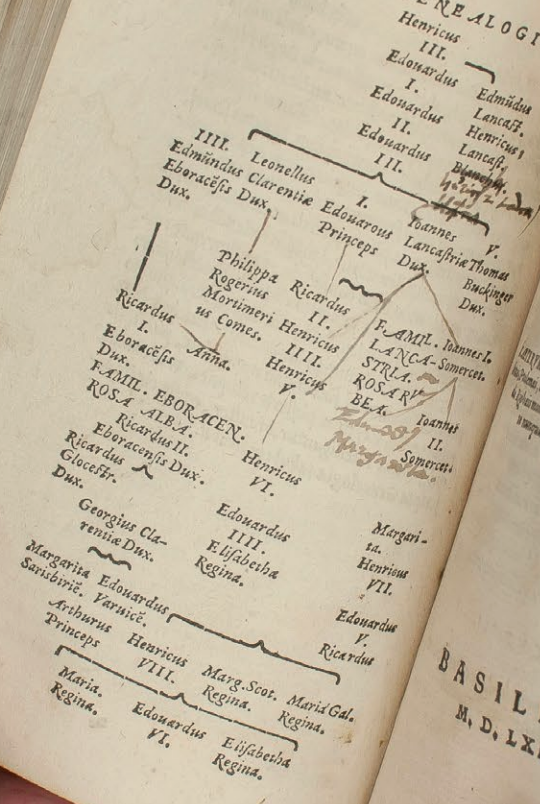 GENEALOGI
Henricus
III.
Edouardus
I.
Edmũdus
Lancast.
Edouardus
II.
Henricus,
Lancast.
Edouardus
III.
Blanch
IIII.
Edmũndus
Eboracẽsis
Dux.
Leonellus
Clarentiæ
Dux.
I.
Edouarous
Princeps
Ioannes
Lancastriæ
Dux.
V.
Thomas
Buckinger
Dux.
Philippa
Rogerius
Mortimeri
us Comes.
Ricardus
II.
Henricus
IIII.
Henricus
V.
FAMIL.
LANCA-
STRIA.
ROSA RV
BEA.
Ioannes I.
Somercet.
Ricardus
I.
Eboracẽsis
Dux.
Anna.
Ioannes
II.
Somercet.
Margareta.
FAMIL. EBORACEN.
ROSA ALBA.
Ricardus II.
Eboracensis Dux.
Henricus
VI.
Ricardus
Glocestr.
Dux.
Georgius Cla-
rentiæ Dux.
Edouardus
IIII.
Elisabetha
Regina.
Margari-
ta.
Henricus
VII.
Margarita
Sarisbiriẽ.
Edouardus
Varuicẽ.
Edouardus
V.
Ricardus
Arthurus
Princeps
Henricus
VIII.
Marg. Scot.
Regina.
Maria Gal.
Regina.
Maria.
Regina.
Edouardus
VI.
Elisabetha
Regina.
BASIL
M. D, LX